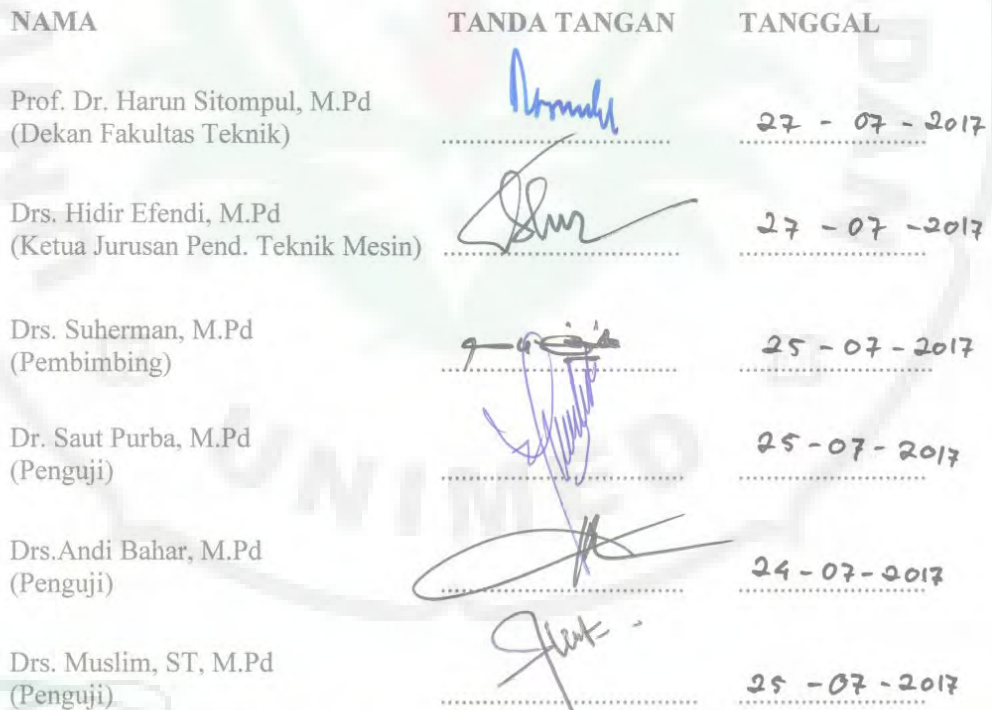 NAMA TANDA TANGAN TANGGAL
Prof. Dr. Harun Sitompul, M.Pd
(Dekan Fakultas Teknik) 27 - 07 - 2017
Drs. Hidir Efendi, M.Pd
(Ketua Jurusan Pend. Teknik Mesin) 27 - 07 - 2017
Drs. Suherman, M.Pd
(Pembimbing) 25 - 07 - 2017
Dr. Saut Purba, M.Pd
(Penguji) 25 - 07 - 2017
Drs.Andi Bahar, M.Pd
(Penguji) 24 - 07 - 2017
Drs. Muslim, ST, M.Pd
(Penguji) 25 - 07 - 2017
UNIMED